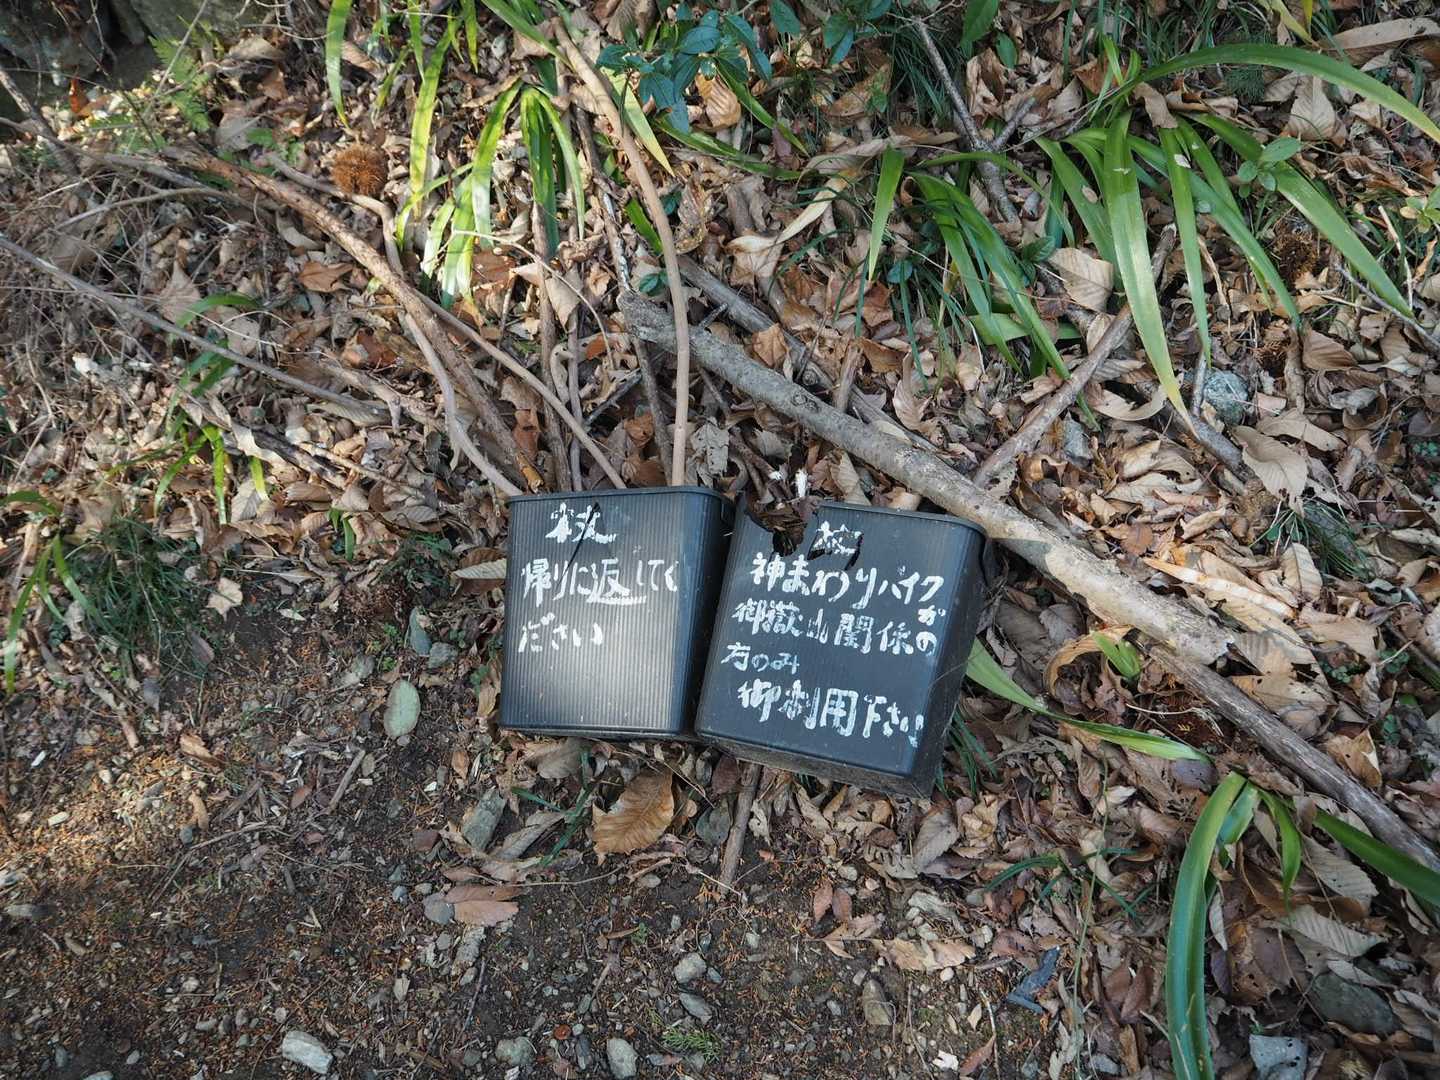 杖
帰りに返してく
ださい
杖
神まわりハイクか
御嶽山関係の
方のみ
御利用下さい